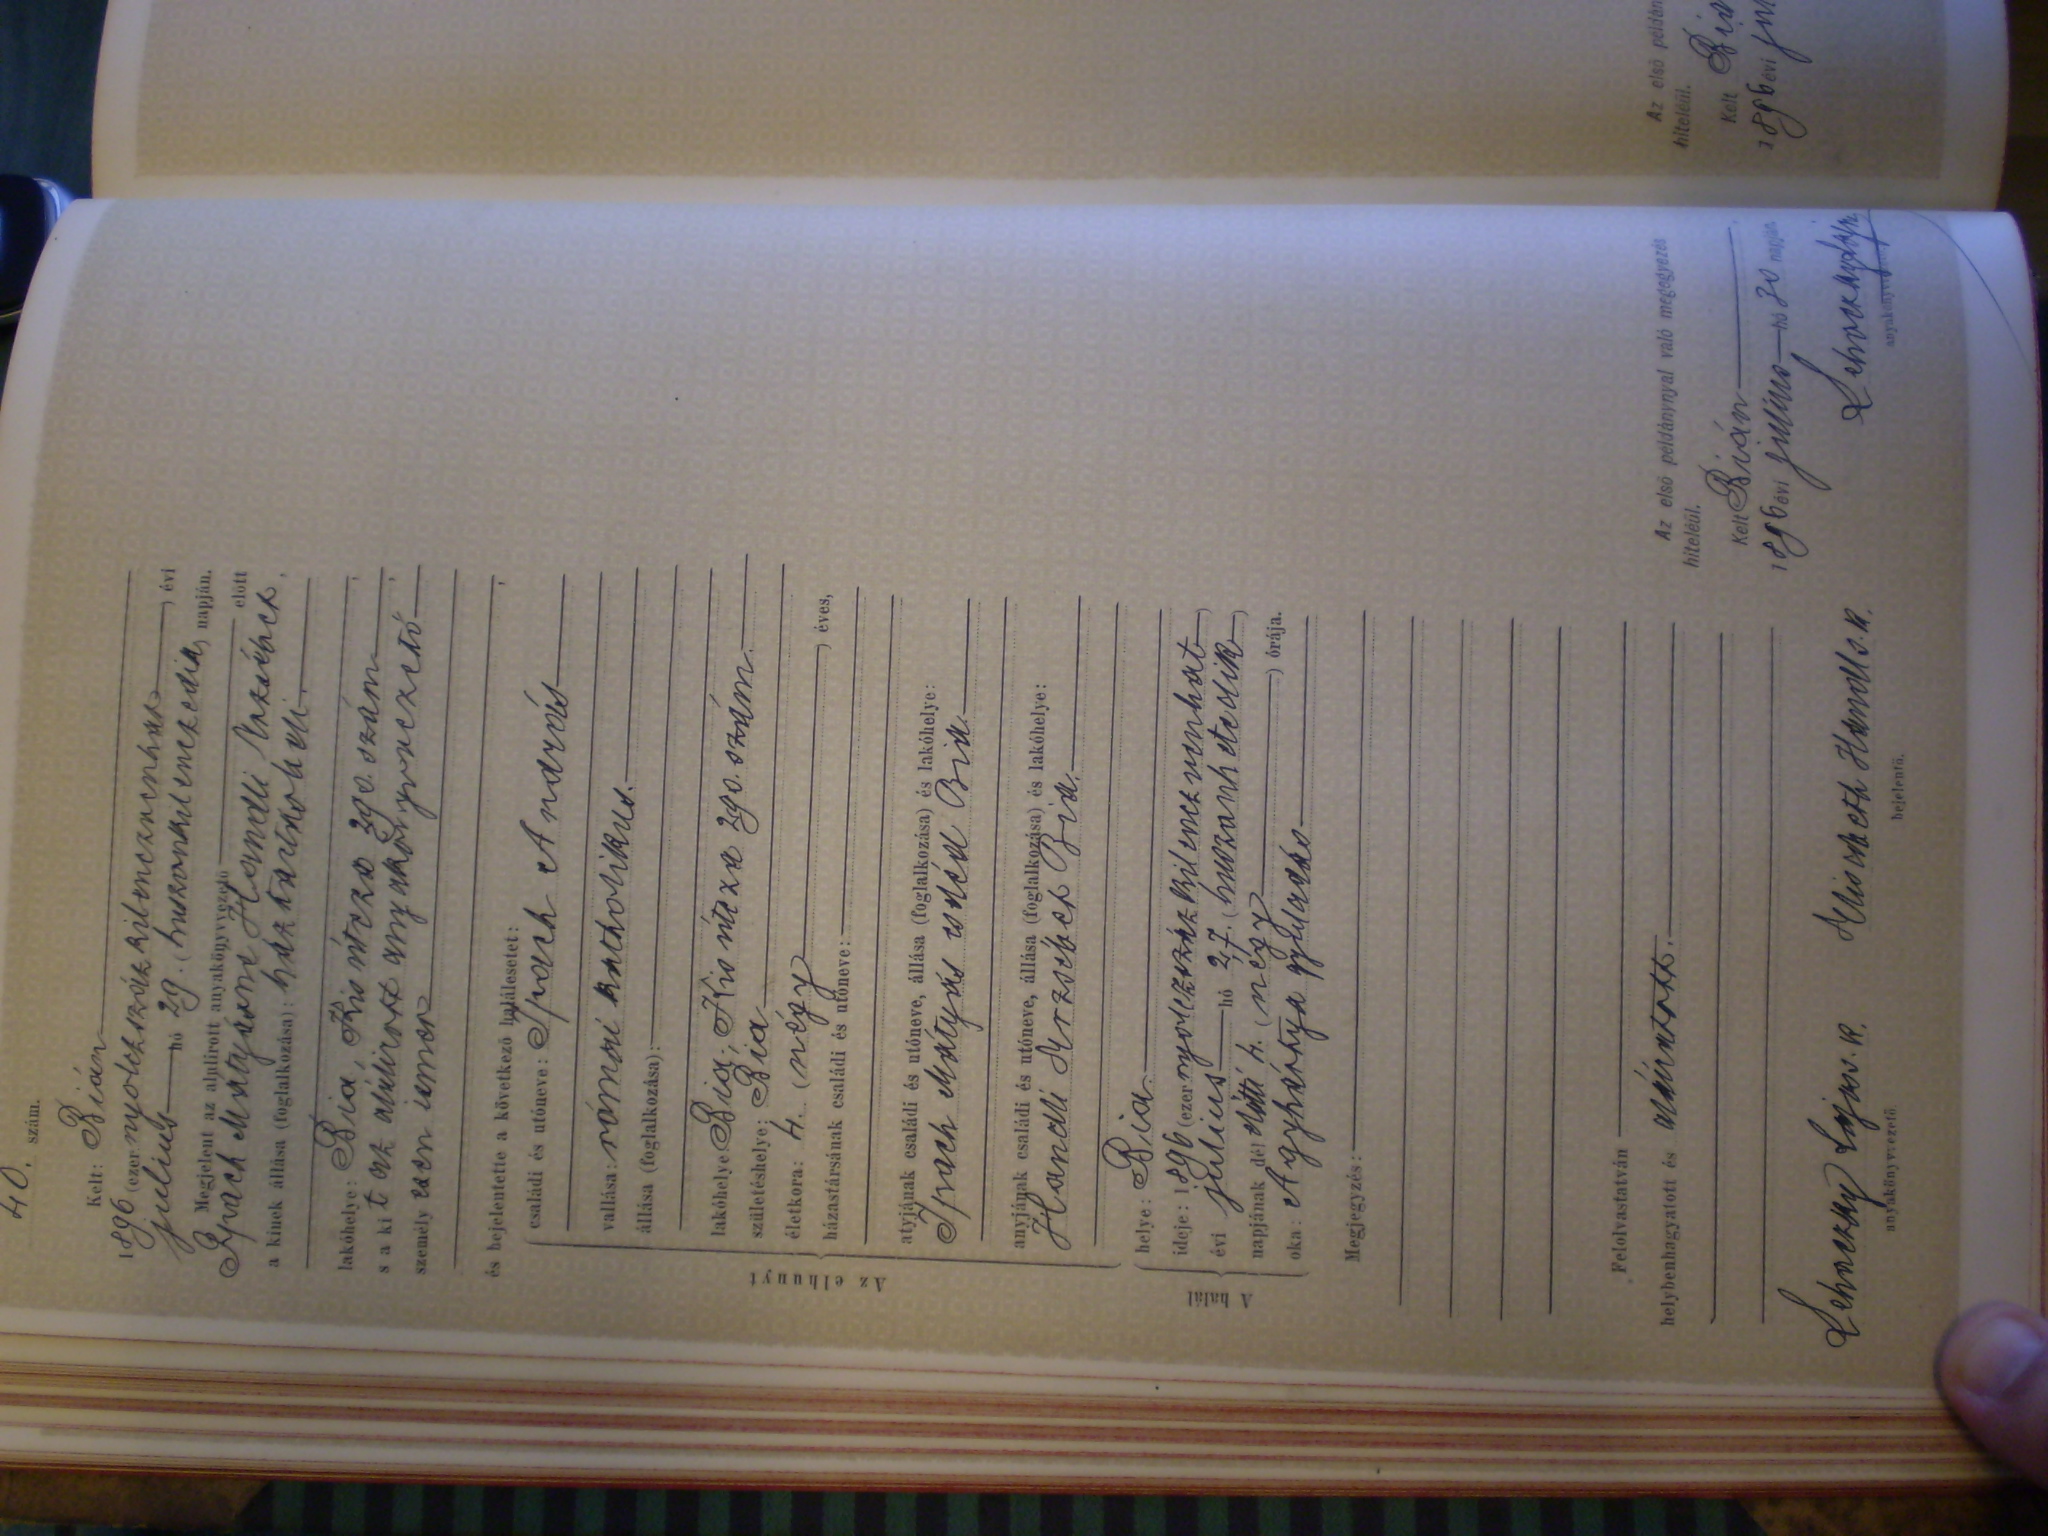 40. szám.
Kelt: Bián
1896 (ezernyolczszázkilenczvenhat), évi
julius hó 29. (huszonkilenczedik) napján.
Megjelent az alulirott anyakönyvvezető előtt
Spach Mátyásné Handli Erzsébet,
a kinek állása (foglalkozása): háztartásbeli.
lakóhelye: Bia, Kis útcza 290. szám,
s a kit az alulirott anyakönyvvezető
személyesen ismer
és bejelentette a következő halálesetet:
Az elhunyt
családi és utóneve: Spach András
vallása: római katholikus.
állása (foglalkozása):
lakóhelye Bia, Kis útcza 290. szám.
születéshelye: Bia
életkora: 4. (négy), éves,
házastársának családi és utóneve:
atyjának családi és utóneve, állása (foglalkozása) és lakóhelye:
Spach Mátyás Bia.
anyjának családi és utóneve, állása (foglalkozása) és lakóhelye:
Handli Erzsébet Bia.
A halál
helye: Bia.
ideje: 1896 (ezernyolczszázkilenczvenhat)
évi julius hó 27. (huszonhetedik)
napjának dél előtti 4. (négy) órája.
oka: Agyhártya gyuladás
Megjegyzés:
Felolvastatván
helybenhagyatott és aláiratott.
Lajos s.k.
anyakönyvvezető.
Elisabeth Handl s.k.
bejelentő.
Az első példánynyal való megegyezés
hiteléül.
Kelt Bián,
1896 évi julius hó 30 napján
anyakönyvvezető.
Az első példán
hiteléül.
Kelt Biá
1896 évi ju